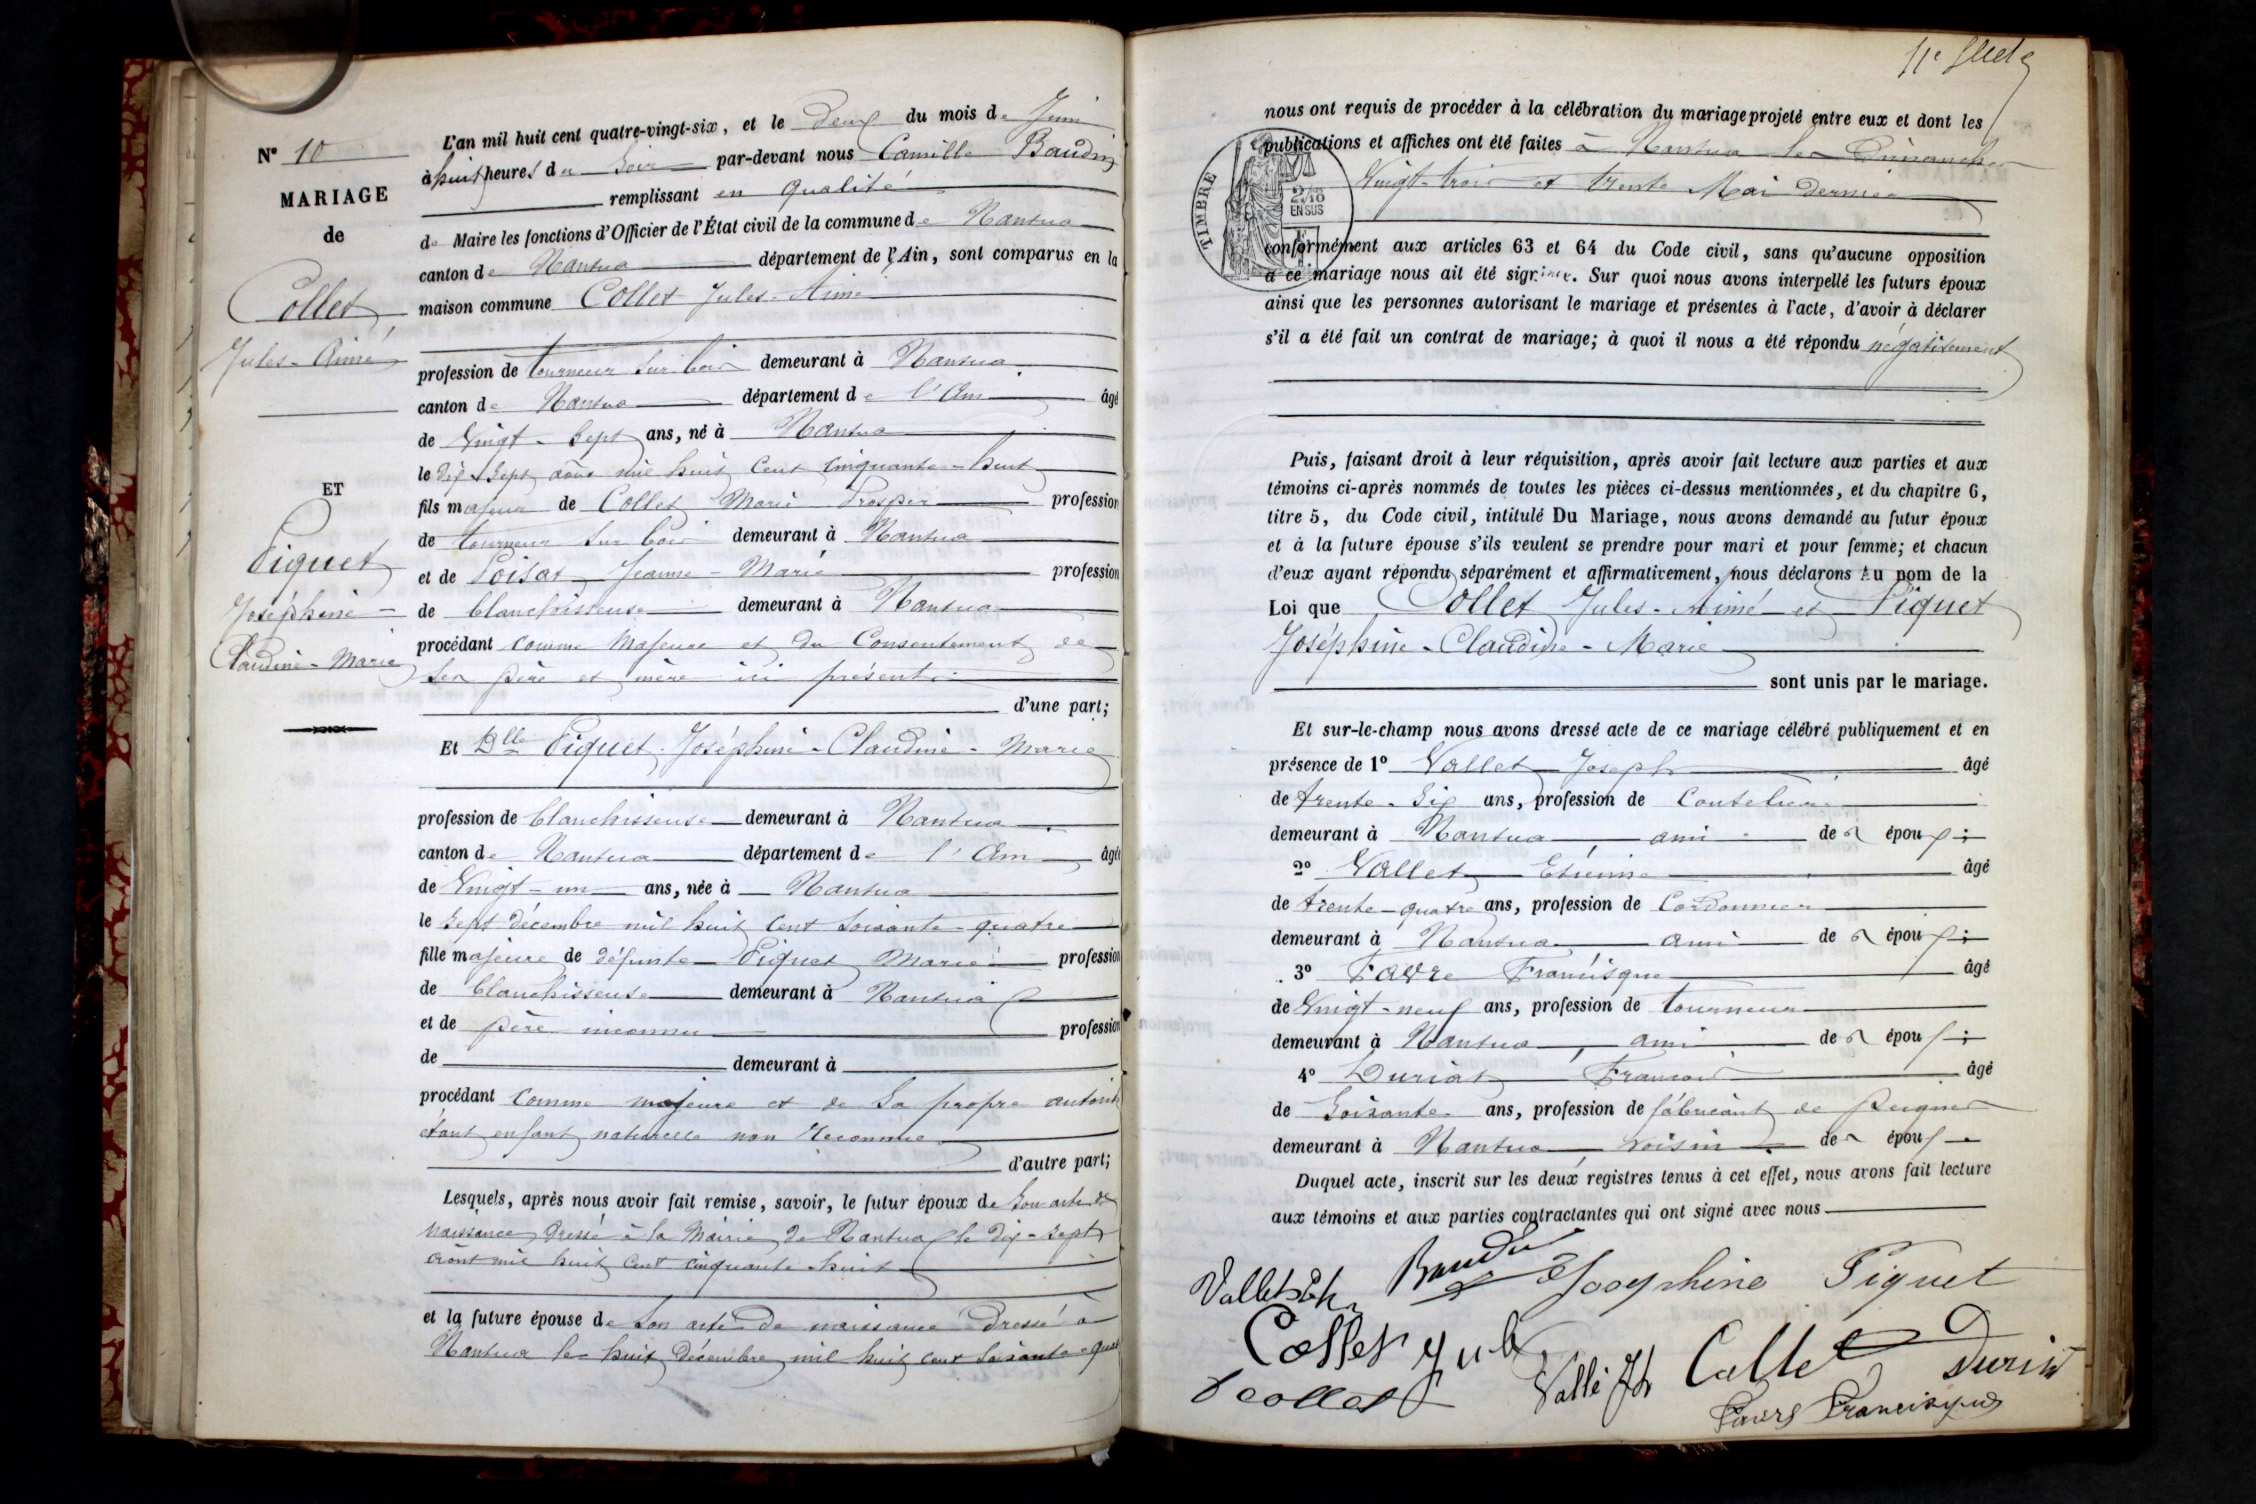 N° 10
MARIAGE
de
Collet
Jules-Aimé
ET
Piquet
Joséphine
Claudine-Marie
L'an mil huit cent quatre-vingt-six, et le deux du mois de Juin
à huit heures du Soir par-devant nous Camille Baudin
remplissant en qualité
de Maire les fonctions d'Officier de l'État civil de la commune de Nantua
canton de Nantua département de l'Ain, sont comparus en la
maison commune Collet Jules-Aimé
profession de tourneur sur bois demeurant à Nantua
canton de Nantua département de l'Ain âgé
de Vingt-Sept ans, né à Nantua
le Dix Sept août mil huit Cent Cinquante-huit
fils majeur de Collet Marie Prosper profession
de tourneur sur bois demeurant à Nantua
et de Poisat Jeanne-Marie profession
de blanchisseuse demeurant à Nantua
procédant comme Majeur et du Consentement de
Ses père et mère ici présents
d'une part;
Et Dlle Piquet Joséphine-Claudine-Marie
profession de blanchisseuse demeurant à Nantua
canton de Nantua département de l'Ain âgée
de Vingt-un ans, née à Nantua
le Sept décembre mil huit cent Soixante-quatre
fille majeure de défunte Piquet Marie profession
de blanchisseuse demeurant à Nantua
et de père inconnu profession
de demeurant à
procédant Comme majeure et de Sa propre autorité
étant enfant naturelle non Reconnue
d'autre part;
Lesquels, après nous avoir fait remise, savoir, le futur époux de Son acte de
naissance dressé à la Mairie de Nantua le dix-Sept
août mil huit Cent cinquante huit
et la future épouse de Son acte de naissance dressé à
Nantua le huit Décembre mil huit cent Soixante-quat
nous ont requis de procéder à la célébration du mariage projeté entre eux et dont les
publications et affiches ont été faites à Nantua les Dimanches
Vingt-trois et trente Mai dernier
TIMBRE
2/10
EN SUS
conformément aux articles 63 et 64 du Code civil, sans qu'aucune opposition
à ce mariage nous ait été signifiée. Sur quoi nous avons interpellé les futurs époux
ainsi que les personnes autorisant le mariage et présentes à l'acte, d'avoir à déclarer
s'il a été fait un contrat de mariage; à quoi il nous a été répondu négativement
Puis, faisant droit à leur réquisition, après avoir fait lecture aux parties et aux
témoins ci-après nommés de toutes les pièces ci-dessus mentionnées, et du chapitre 6,
titre 5, du Code civil, intitulé Du Mariage, nous avons demandé au futur époux
et à la future épouse s'ils veulent se prendre pour mari et pour femme; et chacun
d'eux ayant répondu séparément et affirmativement, nous déclarons au nom de la
Loi que Collet Jules-Aimé et Piquet
Joséphine-Claudine-Marie
sont unis par le mariage.
Et sur-le-champ nous avons dressé acte de ce mariage célébré publiquement et en
présence de 1° Vallet Joseph âgé
de trente-Six ans, profession de Coutelier
demeurant à Nantua, ami des époux;
2° Vallet Etienne âgé
de trente-quatre ans, profession de Cordonnier
demeurant à Nantua ami des époux;
3° Favre Francisque âgé
de Vingt-neuf ans, profession de tourneur
demeurant à Nantua, ami des époux;
4° Duriat François âgé
de Soixante ans, profession de fabricant de peignes
demeurant à Nantua, voisin des époux
Duquel acte, inscrit sur les deux registres tenus à cet effet, nous avons fait lecture
aux témoins et aux parties contractantes qui ont signé avec nous
Baudin Josephine Piquet
Collet Jul
Collet
Collet
Favre Francisque